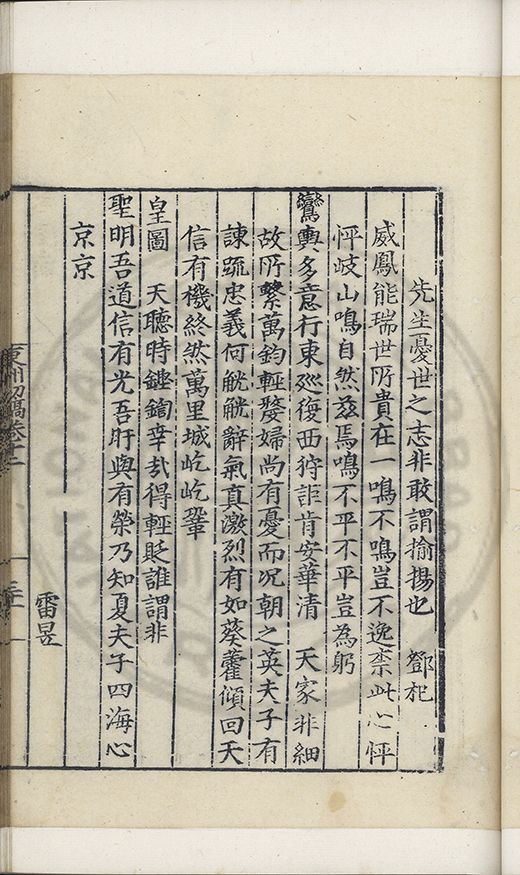 先生憂世之志非敢謂揄揚也　鄧杞
威鳳能瑞世所貴在一鳴不鳴豈不逸柰此心怦
怦岐山鳴自然兹焉鳴不平不平豈為躬
鸞輿多意行東廵復西狩詎肯安華清　天家非細
故所繫萬鈞輕嫠婦尚有憂而况朝之英夫子有
諫疏忠義何觥觥辭氣真激烈有如葵藿傾回天
信有機終然萬里城屹屹鞏
皇圖　天聽時鏗鍧幸𠦑得輕貶誰謂非
聖明吾道信有光吾旴與有榮乃知夏夫子四海心
京京
雷昱
東洲初稿卷十二